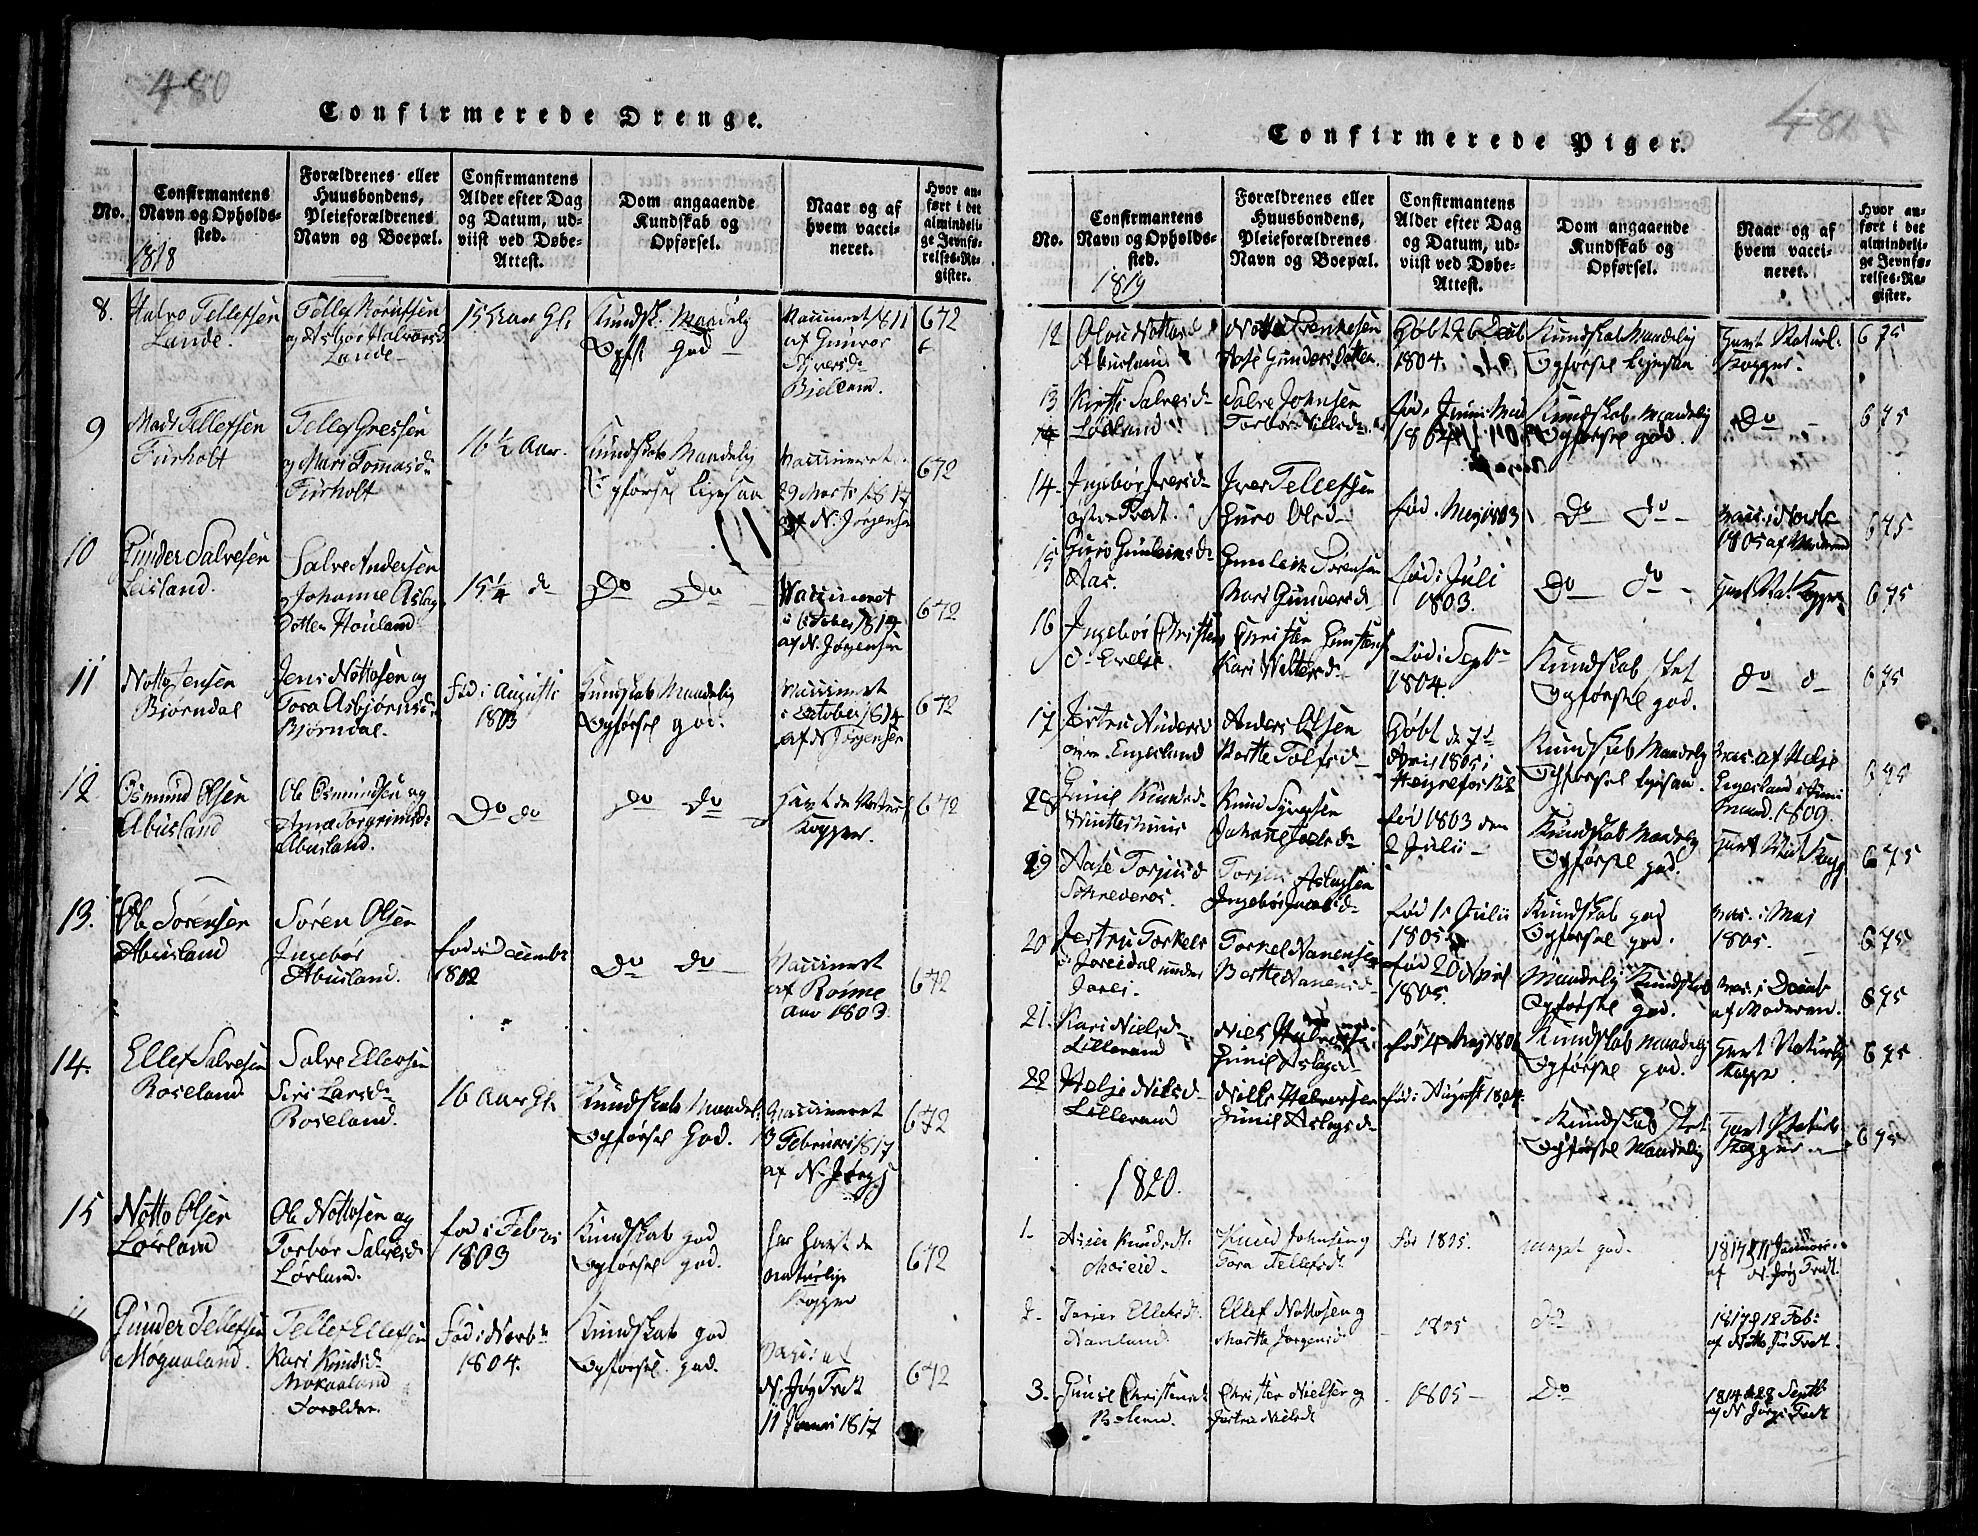 480
Confirmerede Drenge.
No.
Confirmantens
Navn og Opholds-
sted.
1818
Forældrenes eller
Huusbondens,
Pleieforældrenes
Navn og Boepæl.
Confirmantens
Alder efter Dag
og Datum, ud-
viist ved Døbe-
Attest.
Dom angaaende
Kundskab og
Opførsel.
Naar og af
hvem vacci-
neret.
Hvor an-
ført i det
almindeli-
ge Jevnfø-
relses-Re-
gister.
8. Halvo Tellefsen
Lande.
Lande
15 Aar Gl:
Kundsk. Maadelig
Opfsl God
Vaccineret 1811
af Gunvor
Bieland.
672
9 Mads Tellefsen
Furholt
Tellef Gressen
og Mari Tomasd
Furholt
16 1/2 Aar.
Kundskab Maadelig
Opførsel Ligesaa
Vaccineret
29 Marts 1817
af N. Jørgensen
672
10 Gunder Salvesen
Leisland.
Salve Andersen
og Johanne Aslag
Dotter Houland
15 1/4 d
Do Do
Vaccineret
i October 1814
af N. Jørgensen
672
11 Notto Jensen
Bjorndal
Jens Nottosen og
Tora Asbjørnsd
Bjørndal.
fød i Augusti
1803
Kundskab Maadelig
Opførsel god.
Vaccineret
i October 1814
af N Jørgensen
672
12 Osmund Olsen
Abusland
Ole Osmundsen og
Anne Torgrimsd
Abusland.
Do do
Do Do
Havt de Naturl
Kopper.
672
13. Ole Sørensen
Abusland
Søren Olsen
Ingebor
Abusland.
fød i December
1802
Do Do
Vaccineret
af Roime
Aar 1803.
672
14. Ellef Salvesen
Roseland
Salve Ellevsen
Siri Larsd
Roseland.
16 Aar Gl.
Kundskab Maadel:
Opførsel God.
Vaccineret
13 Februari 1817
af N. Jørgs
672
15 Notto Olsen
Lørland
Ole Nottosen og
Torbor Salvesd
Lørland.
fød i Febru
1803
Kundskab god
Opførsel god.
har havt de
naturlige
Kopper
672
Gunder Tellefsen
Mogualand.
Tellef Ellefsen
Kari Knudsd
Mokualand
Forældre.
Fød i Novbr
1804.
Kundskab god
Opførsel god.
N. Jørg Tredt
11 Januari 1817
672
481
Confirmerede Piger.
No.
Confirmantens
Navn og Opholds-
sted.
1819
Forældrenes eller
Huusbondens,
Pleieforældrenes
Navn og Boepæl.
Confirmantens
Alder efter Dag
og Datum, ud-
viist ved Døbe-
Attest.
Dom angaaende
Kundskab og
Opførsel.
Naar og af
hvem vacci-
neret.
Hvor an-
ført i det
almindeli-
ge Jevnfø-
relses-Re-
gister.
12 Olou Nottosd
Abusland
Aase Gunders Datter
Døbt 26 Decb
1804.
Kundskab Maadelig
Opførsel Ligesaa
Havt Naturl.
Kopper.
675
13 Kirsti Salvesd
Lorland
Salve Johnsen
Torbor Nilsd
fød i Junii Md
1804
Kundskab Maadelig
Opførsel god.
Do
675
14. Ingebor Iversd
Iver Tellefsen
Guro Olsd
fød i Maj 1803
Do do
1805 af Moderen
675
15 Guro Gunleiksd
Aas.
Gunleik Sørensen
Mari Gundersd
fød i Juli
1803.
Do do
Havt Nat Kopper
675
16 Ingebor Christen
d
Kari
Fød i Septbr
1804.
Kundskab slet
Opførsel god.
do d
675
17 Jertru Andersd
Engesland
Anders Olsen
Berthe Tolfsd
Døbt d 7de
April 1805 i
Kundskab Maadelig
Opførsel Ligesaa.
Vac. af Helje
Engesland i Junii
Maaned 1809.
675
18 Gunil Knudsd
Knud
Johanne
fød 1803 den
2 Julii
Kundskab Maadelig
Opførsel god.
Havt Nat Kopp
675
19 Aase Torjusd
Torjus Aslagsen
Ingebor Jacobsd
fød 1 Julii
1805
Kundskab god
Opførsel god.
Vac. i Maj
1805.
675
20 Jertru Torkels
d Joreidal under
Jorei.
Torkel Nanensen
Berthe Nanensd
fød 20 April
1805.
Maadelig Kundskab
Opførsel God.
Vac. i Decbr
af Moderen.
675
21. Kari Nielsd
Lillerand
Niels Halvorsen
Gunil Aslagsd
fød 4 Maj 180
Kundskab Maadelig
Opførsel god.
Havt Naturlig
Kopper
675
22 Helje Nilsd
Lillerand
Nills Halvorsen
Gunil Aslagsd
fød i August 1804.
Kundskab slet
Opførsel Maadelig
Havt Naturl
Kopper
675
1820.
1. Knudsdt.
Knud Johnsen og
Tora Tellefsdt
Før 1805.
meget god.
1817 d 11 Januari
af N. Jørg Tredt.
2. Ellefsdt
Ellef Nottosen og
Martha Jørgensd
1805
Do
1817 d 12 Feb:
af Notto Jør Tredt.
3. Gunil Christensdt
Christen Nielsen og
Jertru Nielsdt
1805
Do
1814 d 28 Septb
af N Jørgs Tredt